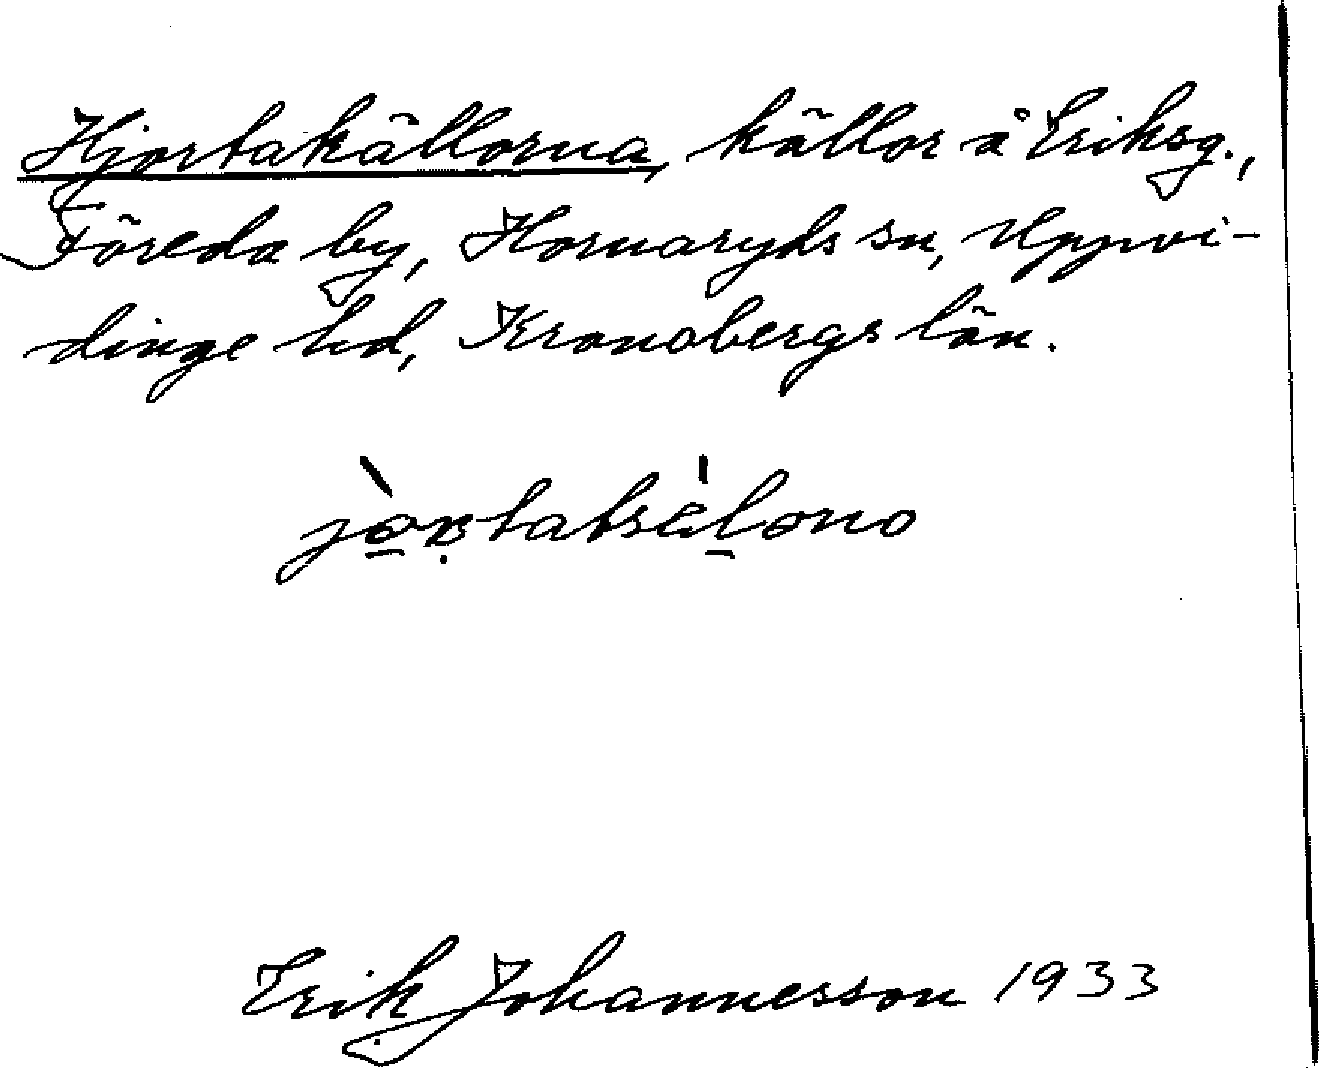 Hjortakällorna, källor å Eriksg.,
Föreda by, Hornaryds sn, Uppvi-
dinge hd, Kronobergs län.
Erik Johannesson 1933